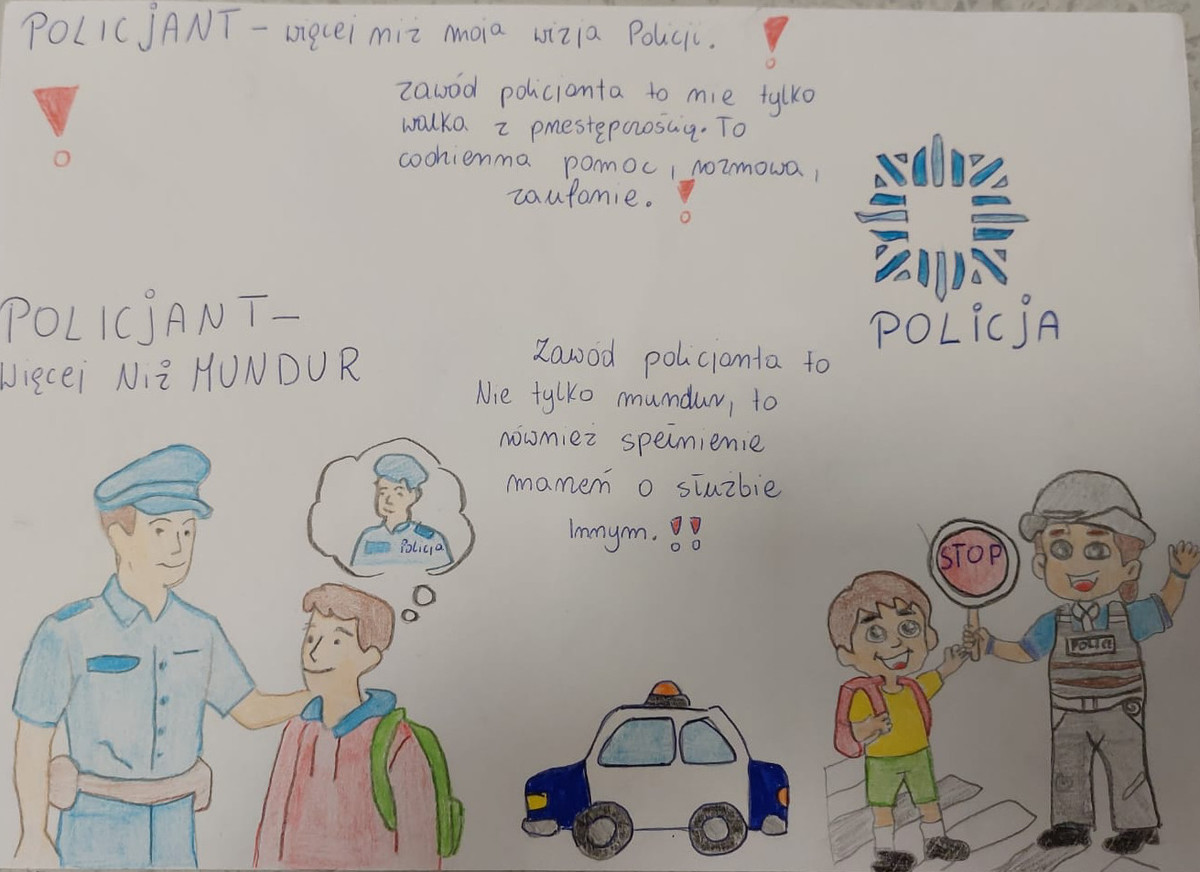 POLICJANT – więcej niż moja wizja Policji.
Zawód policjanta to nie tylko
walka z przestępczością. To
codzienna pomoc, rozmowa,
zaufanie.
POLICJA
POLICJANT –
Więcej Niż MUNDUR
Zawód policjanta to
Nie tylko mundur, to
również spełnienie
marzeń o służbie
Innym.!!
Policja
STOP